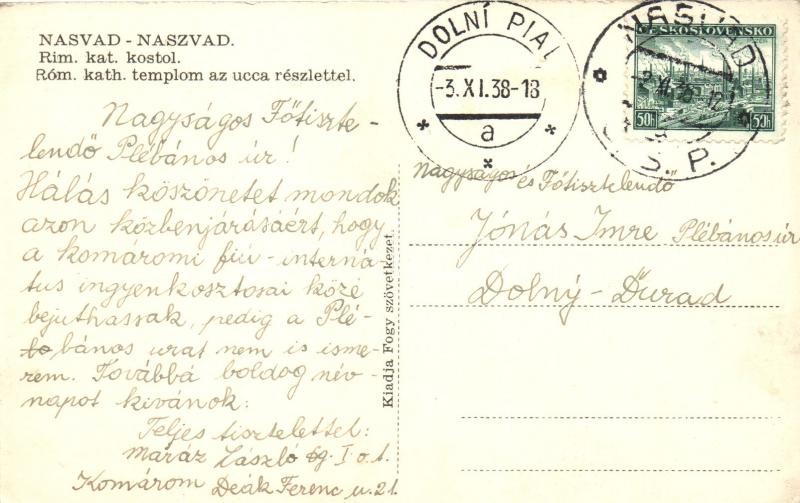 NASVAD - NASZVAD.
Rim. kat. kostol.
Róm. kath. templom az ucca részlettel.
Nagyságos Főtiszte-
lendő Plébános úr!
Hálás köszönetet mondok
azon közbenjárásáért, hogy
a komáromi fiú-interná-
tus ingyenkosztosai közé
bejuthassak, pedig a Plé-
bános urat nem is isme-
rem. Továbbá boldog név-
napot kivánok:
Teljes tisztelettel:
Maráz László I. o. t.
Komárom Deák Ferenc u. 21.
Kiadja Fogy szövetkezet.
DOLNÍ PIAL
-3.XI.38-18
a
NASVAD
Č.S.P.
ČESKOSLOVENSKO
50h 50h
Nagyságos és Főtisztelendő
Jónás Imre Plébános úr
Dolný-Ďurad